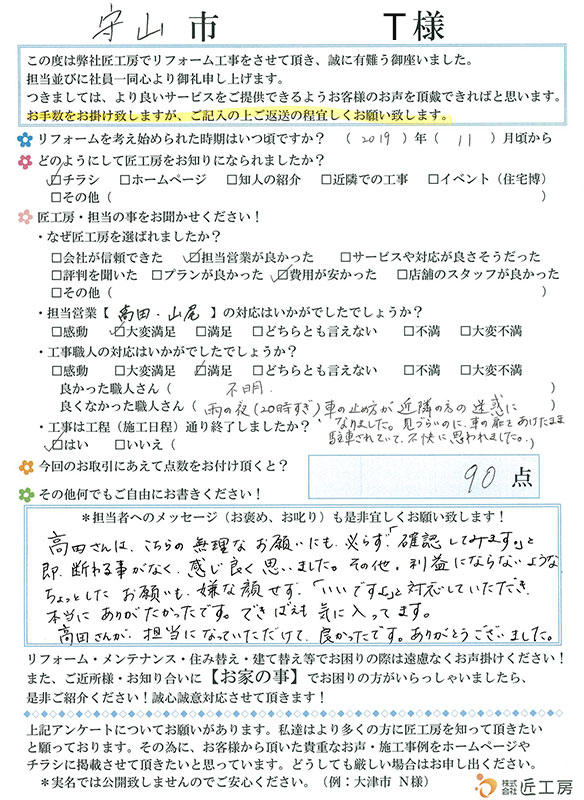 守山市 T様
この度は弊社匠工房でリフォーム工事をさせて頂き、誠に有難う御座いました。
担当並びに社員一同心より御礼申し上げます。
つきましては、より良いサービスをご提供できるようお客様のお声を頂戴できればと思います。
お手数をお掛け致しますが、ご記入の上ご返送の程宜しくお願い致します。
リフォームを考え始められた時期はいつ頃ですか？（2019）年（11）月頃から
どのようにして匠工房をお知りになられましたか？
☑チラシ □ホームページ □知人の紹介 □近隣での工事 □イベント（住宅博）
□その他（ ）
匠工房・担当の事をお聞かせください！
・なぜ匠工房を選ばれましたか？
□会社が信頼できた ☑担当営業が良かった □サービスや対応が良さそうだった
□評判を聞いた □プランが良かった ☑費用が安かった □店舗のスタッフが良かった
□その他（ ）
・担当営業【高田・山尾】の対応はいかがでしたでしょうか？
□感動 ☑大変満足 □満足 □どちらとも言えない □不満 □大変不満
・工事職人の対応はいかがでしたでしょうか？
□感動 □大変満足 ☑満足 □どちらとも言えない □不満 □大変不満
良かった職人さん（ 不明. ）
良くなかった職人さん（雨の夜（20時すぎ）、車の止め方が近隣の方の迷惑に
なりました。見づらいのに、車の扉をあけたまま
駐車されていて、不快に思われました。）
・工事は工程（施工日程）通り終了しましたか？
☑はい □いいえ（
今回のお取引にあえて点数をお付け頂くと？ 90 点
その他何でもご自由にお書きください！
＊担当者へのメッセージ（お褒め、お叱り）も是非宜しくお願い致します！
高田さんは、こちらの無理なお願いにも、必らず「確認してみます。」と
即、断わる事がなく、感じ良く思いました。その他、利益にならないような
ちょっとしたお願いも、嫌な顔せず、「いいですよ。」と対応していただき、
本当にありがたかったです。できばえも気に入ってます。
高田さんが、担当になっていただけて、良かったです。ありがとうございました。
リフォーム・メンテナンス・住み替え・建て替え等でお困りの際は遠慮なくお声掛けください！
また、ご近所様・お知り合いに【お家の事】でお困りの方がいらっしゃいましたら、
是非ご紹介ください！誠心誠意対応させて頂きます！
上記アンケートについてお願いがあります。私達はより多くの方に匠工房を知って頂きたい
と願っております。その為に、お客様から頂いた貴重なお声・施工事例をホームページや
チラシに掲載させて頂きたいと思っています。どうしても厳しい場合はお申し出ください。
＊実名では公開致しませんのでご安心ください。（例：大津市 N様）
株式会社 匠工房